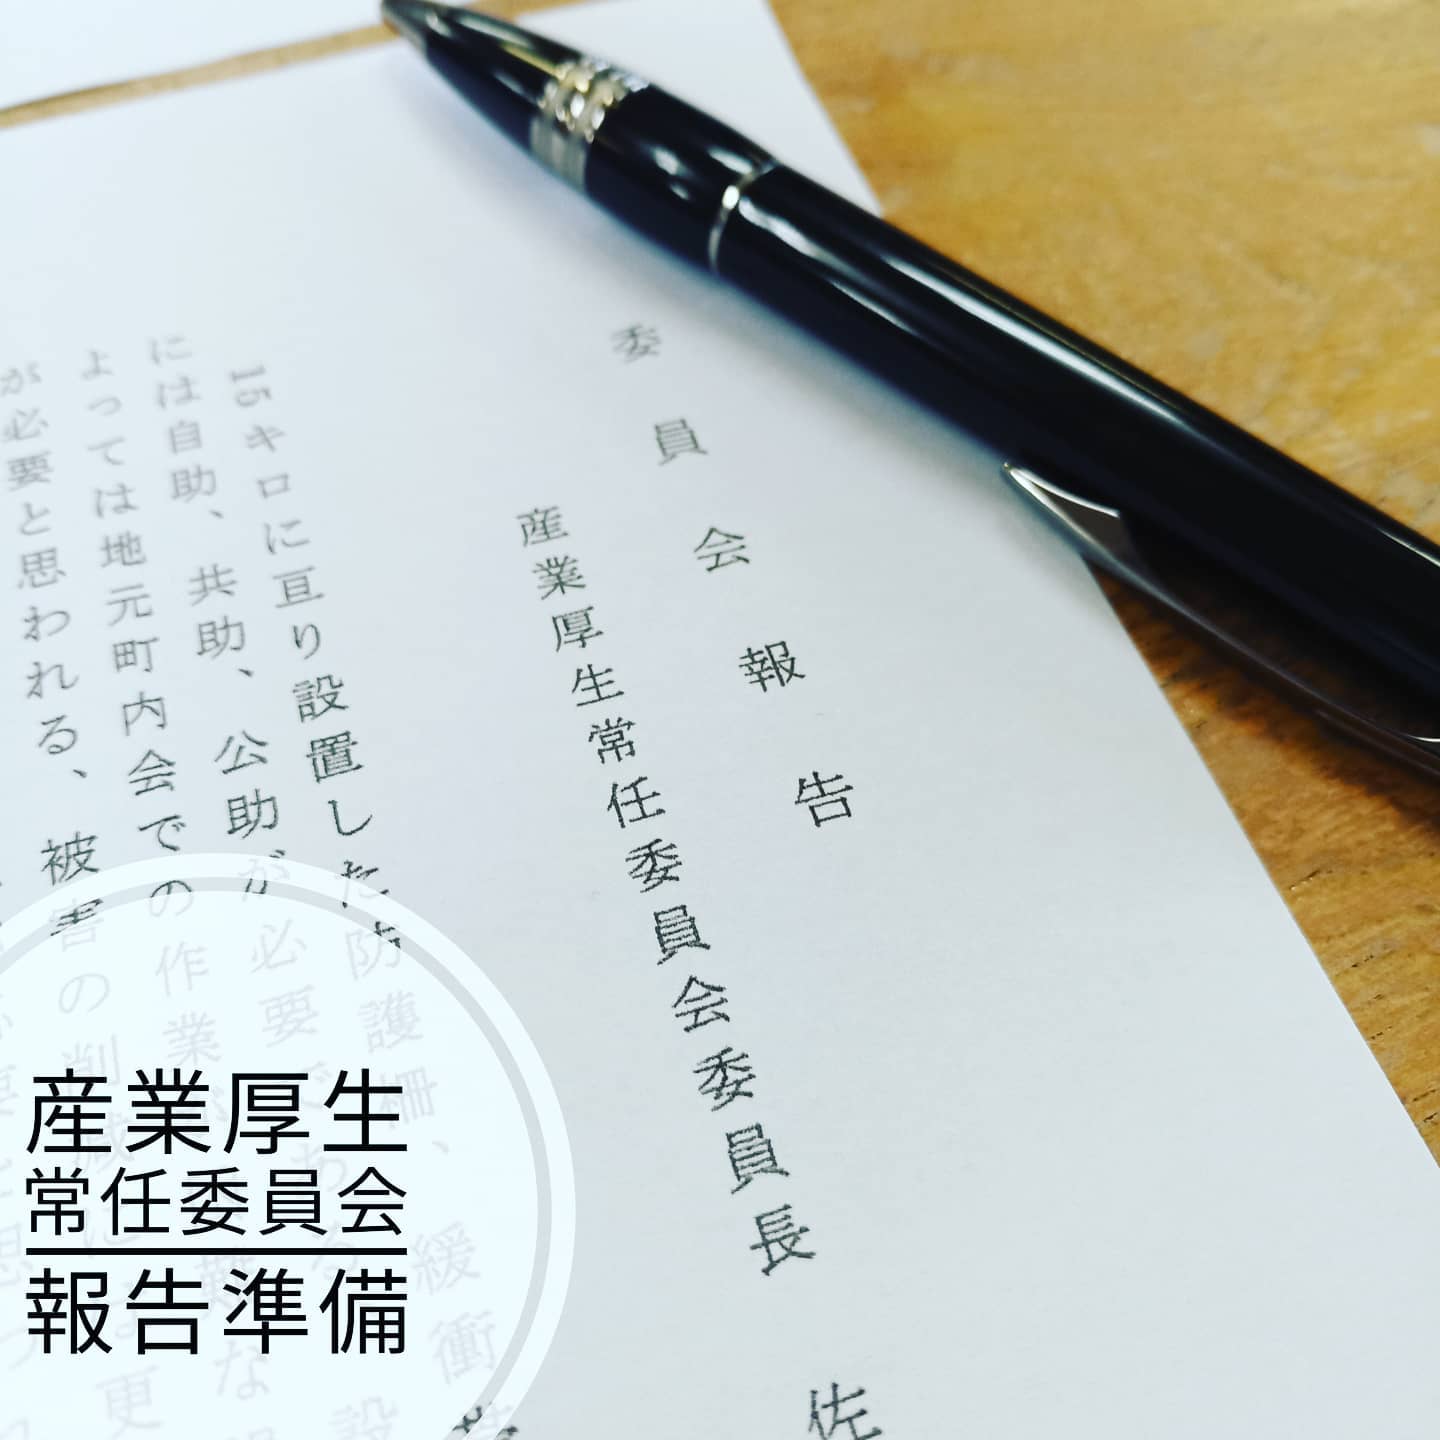 委員会報告
産業厚生常任委員会委員長 佐
15キロに亘り設置した防護柵、緩衝
には自助、共助、公助が必要である 設
よっては地元町内会での作業が 難な
が必要と思われる、被害の削減に 更
産業厚生
常任委員会
報告準備